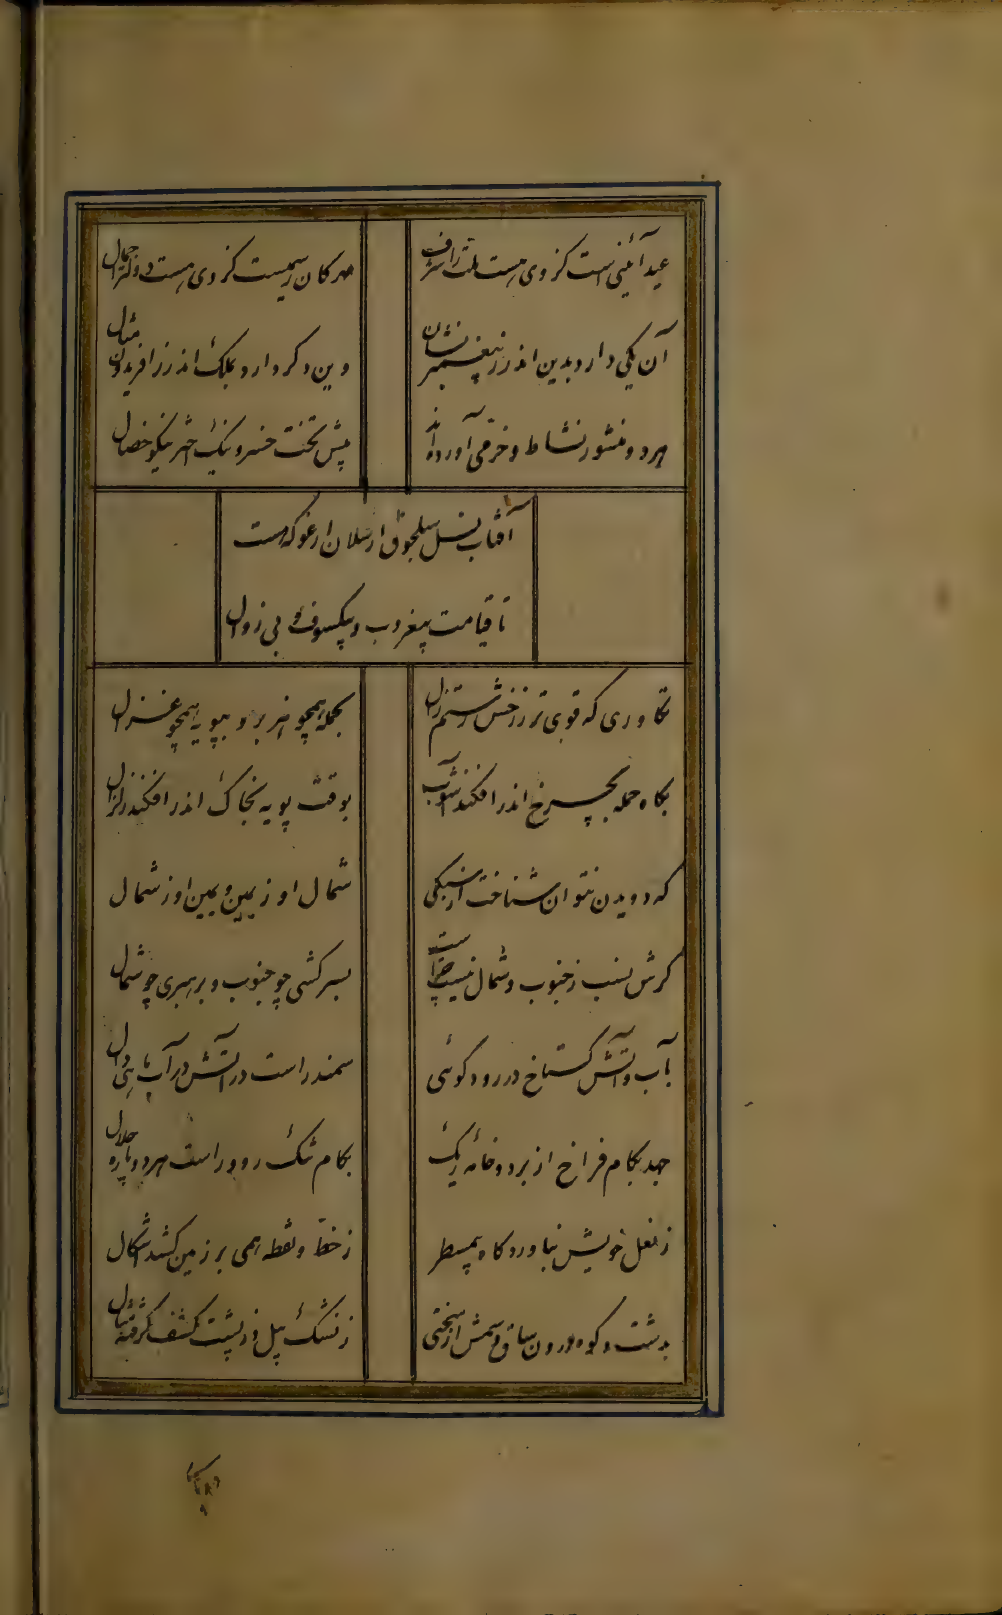 عید آئینی است کز وی هست ملت را شرف
مهرکان رسمیست کز وی هست دولت را جمال
آن یکی دارد بدین اندر ز پیغمبر نشان
وین دکر دارد بملک اندر ز افریدون مثال
هر دو منشور نشاط و خرمی آورده اند
پیش تخت خسرو نیک اختر نیکو خصال
آفتاب نسل سلجوق ارسلان ارغو که هست
تا قیامت بیغروب و بیکسوف و بی زوال
تکاوری که قوی تر ز رخش رستم زال
بحمله همچو هزبر و بپویه همچو غزال
بکاه حمله بچرخ اندر افکند آشوب
بوقت پویه بخاک اندر افکند زلزال
که دویدن نتوان شناخت از سبکی
شمال او ز یمین و یمین او ز شمال
کرش نسب ز جنوب و شمال نیست چراست
بسرکشی چو جنوب و برهبری چو شمال
بآب و آتش کستاخ در رود کوئی
سمندر است در آتش در آب ماهی دال
جهد بکام فراخ از بر دو خانه ریک
بکام تنک رود راست هر دو پاره خلال
ز نعل خویش بناورد کاه بیمسطر
ز خط و نقطه همی بر زمین کشد اشکال
بدشت و کوه درون ساق و سمش از سختی
ز نشک پیل و ز پشت کشف کرفته مثال